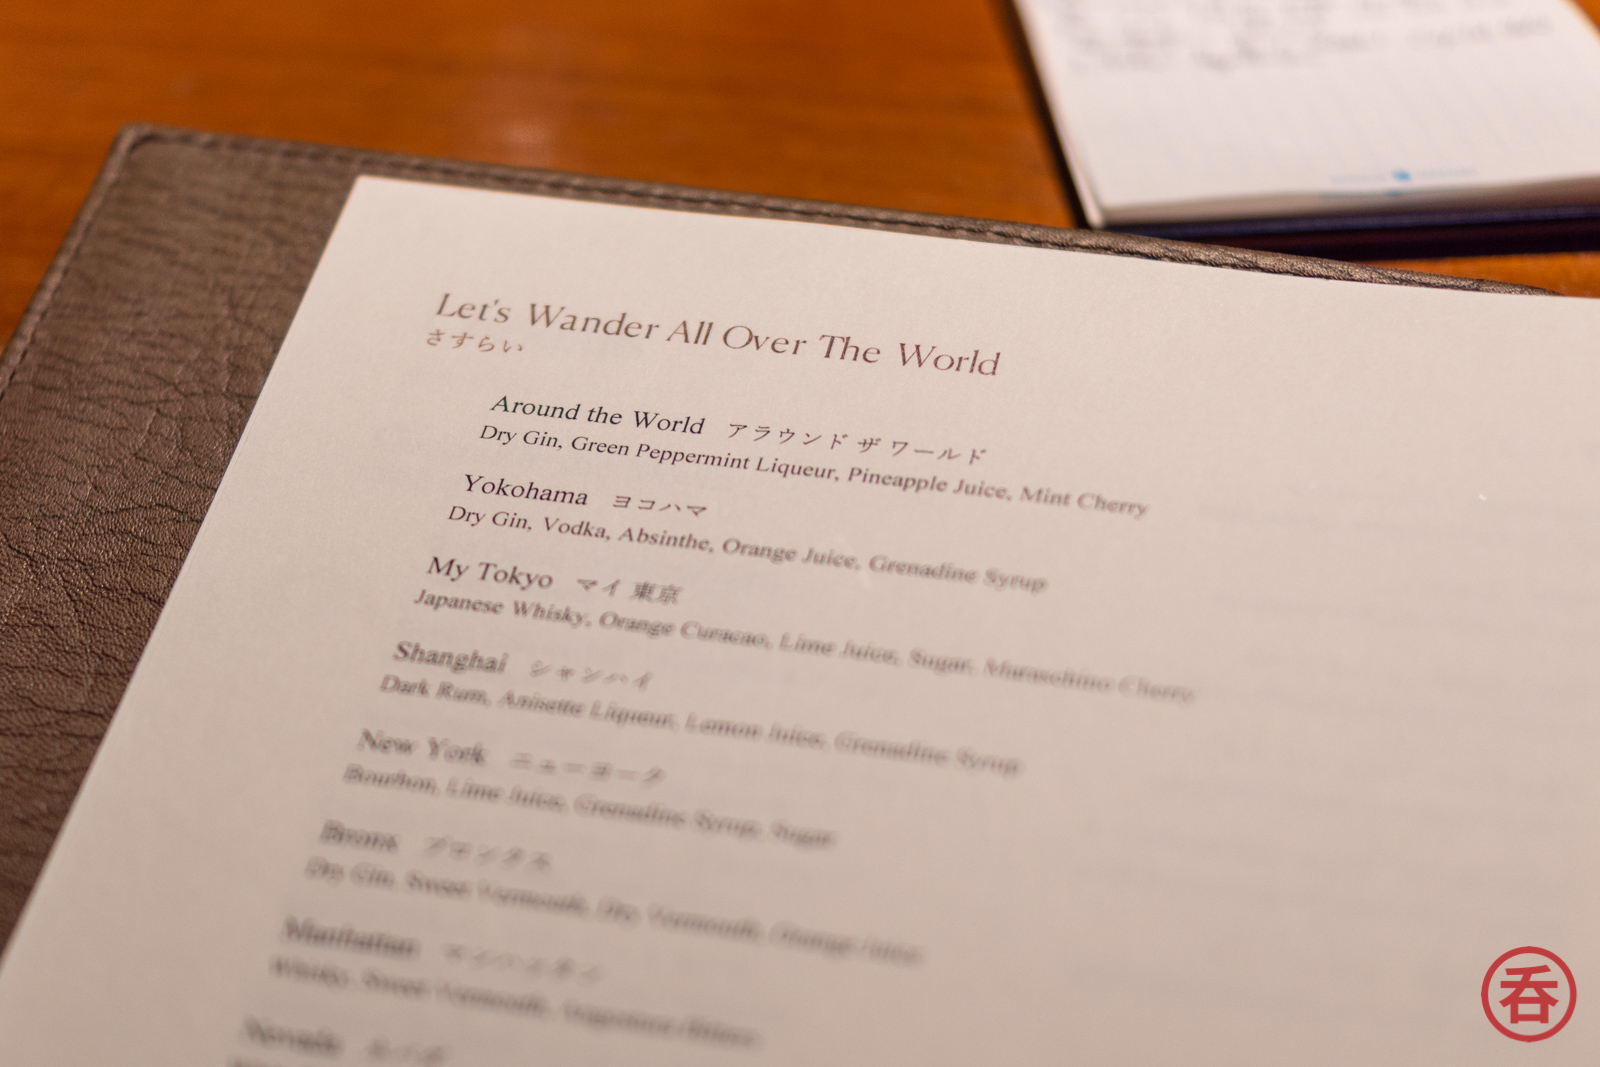 Let's Wander All Over The World
さすらい
Around the World アラウンド ザ ワールド
Dry Gin, Green Peppermint Liqueur, Pineapple Juice, Mint Cherry
Yokohama ヨコハマ
Dry Gin, Vodka, Absinthe, Orange Juice, Grenadine Syrup
My Tokyo マイ 東京
Japanese Whisky, Orange Curacao, Lime Juice, Sugar, Maraschino Cherry
Shanghai シャンハイ
Dark Rum, Anisette Liqueur, Lemon Juice, Grenadine Syrup
New York ニューヨーク
Bourbon, Lime Juice, Grenadine Syrup, Sugar
Bronx ブロンクス
Dry Gin, Sweet Vermouth, Dry Vermouth, Orange Juice
Manhattan マンハッタン
Whisky, Sweet Vermouth, Angostura Bitters
Nevada ネバダ
呑